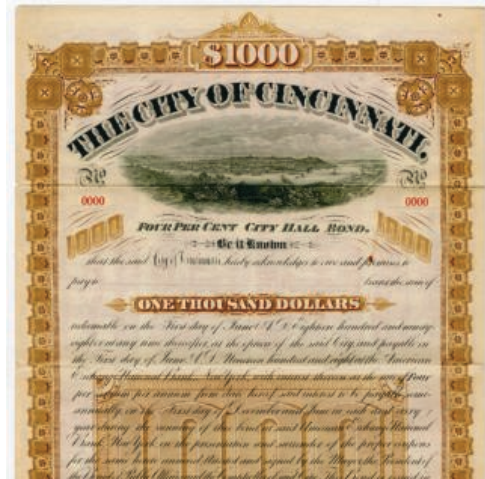 $1000
THE CITY OF CINCINNATI,
No No
0000 0000
1000 1000
FOUR PER CENT CITY HALL BOND.
Be it Known
that the said City of Cincinnati hereby acknowledges to owe and promises to
pay to bearer the sum of
ONE THOUSAND DOLLARS
redeemable on the First day of June A.D. Eighteen hundred and ninety
eight or at any time thereafter, at the option of the said City, and payable on
the First day of June A.D. Nineteen hundred and eight at the American
Exchange National Bank, New York, with interest thereon at the rate of Four
per centum per annum from date hereof said interest to be payable semi
annually, on the First day of December and June in each and every
year during the running of this bond at said American Exchange National
Bank New York on the presentation and surrender of the proper coupons
for the same hereto annexed Attested and signed by the Mayor the President of
the Board of Public Affairs and the Comptroller of said City. This Bond is issued in